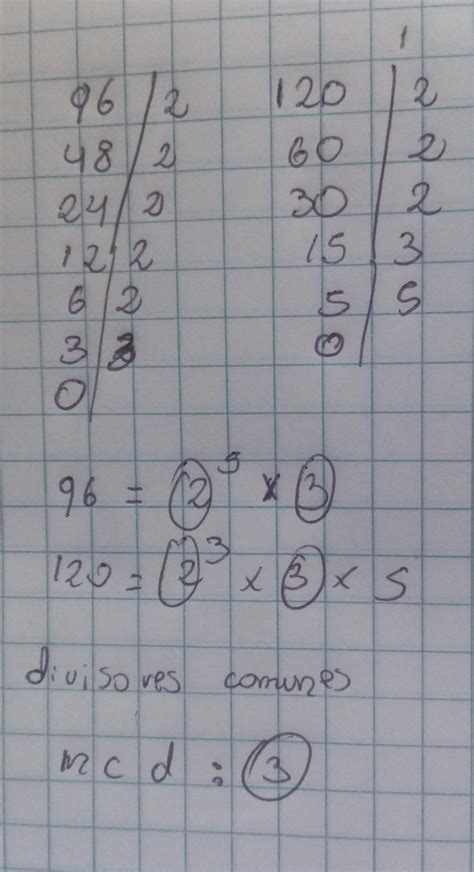 1
96 / 2 120 | 2
48 / 2 60 | 2
24 / 2 30 | 2
12 / 2 15 | 3
6 / 2 5 | 5
3 / 3 0 |
0 /
96 = 2⁵ × 3
120 = 2³ × 3 × 5
divisores comunes
mcd : 3